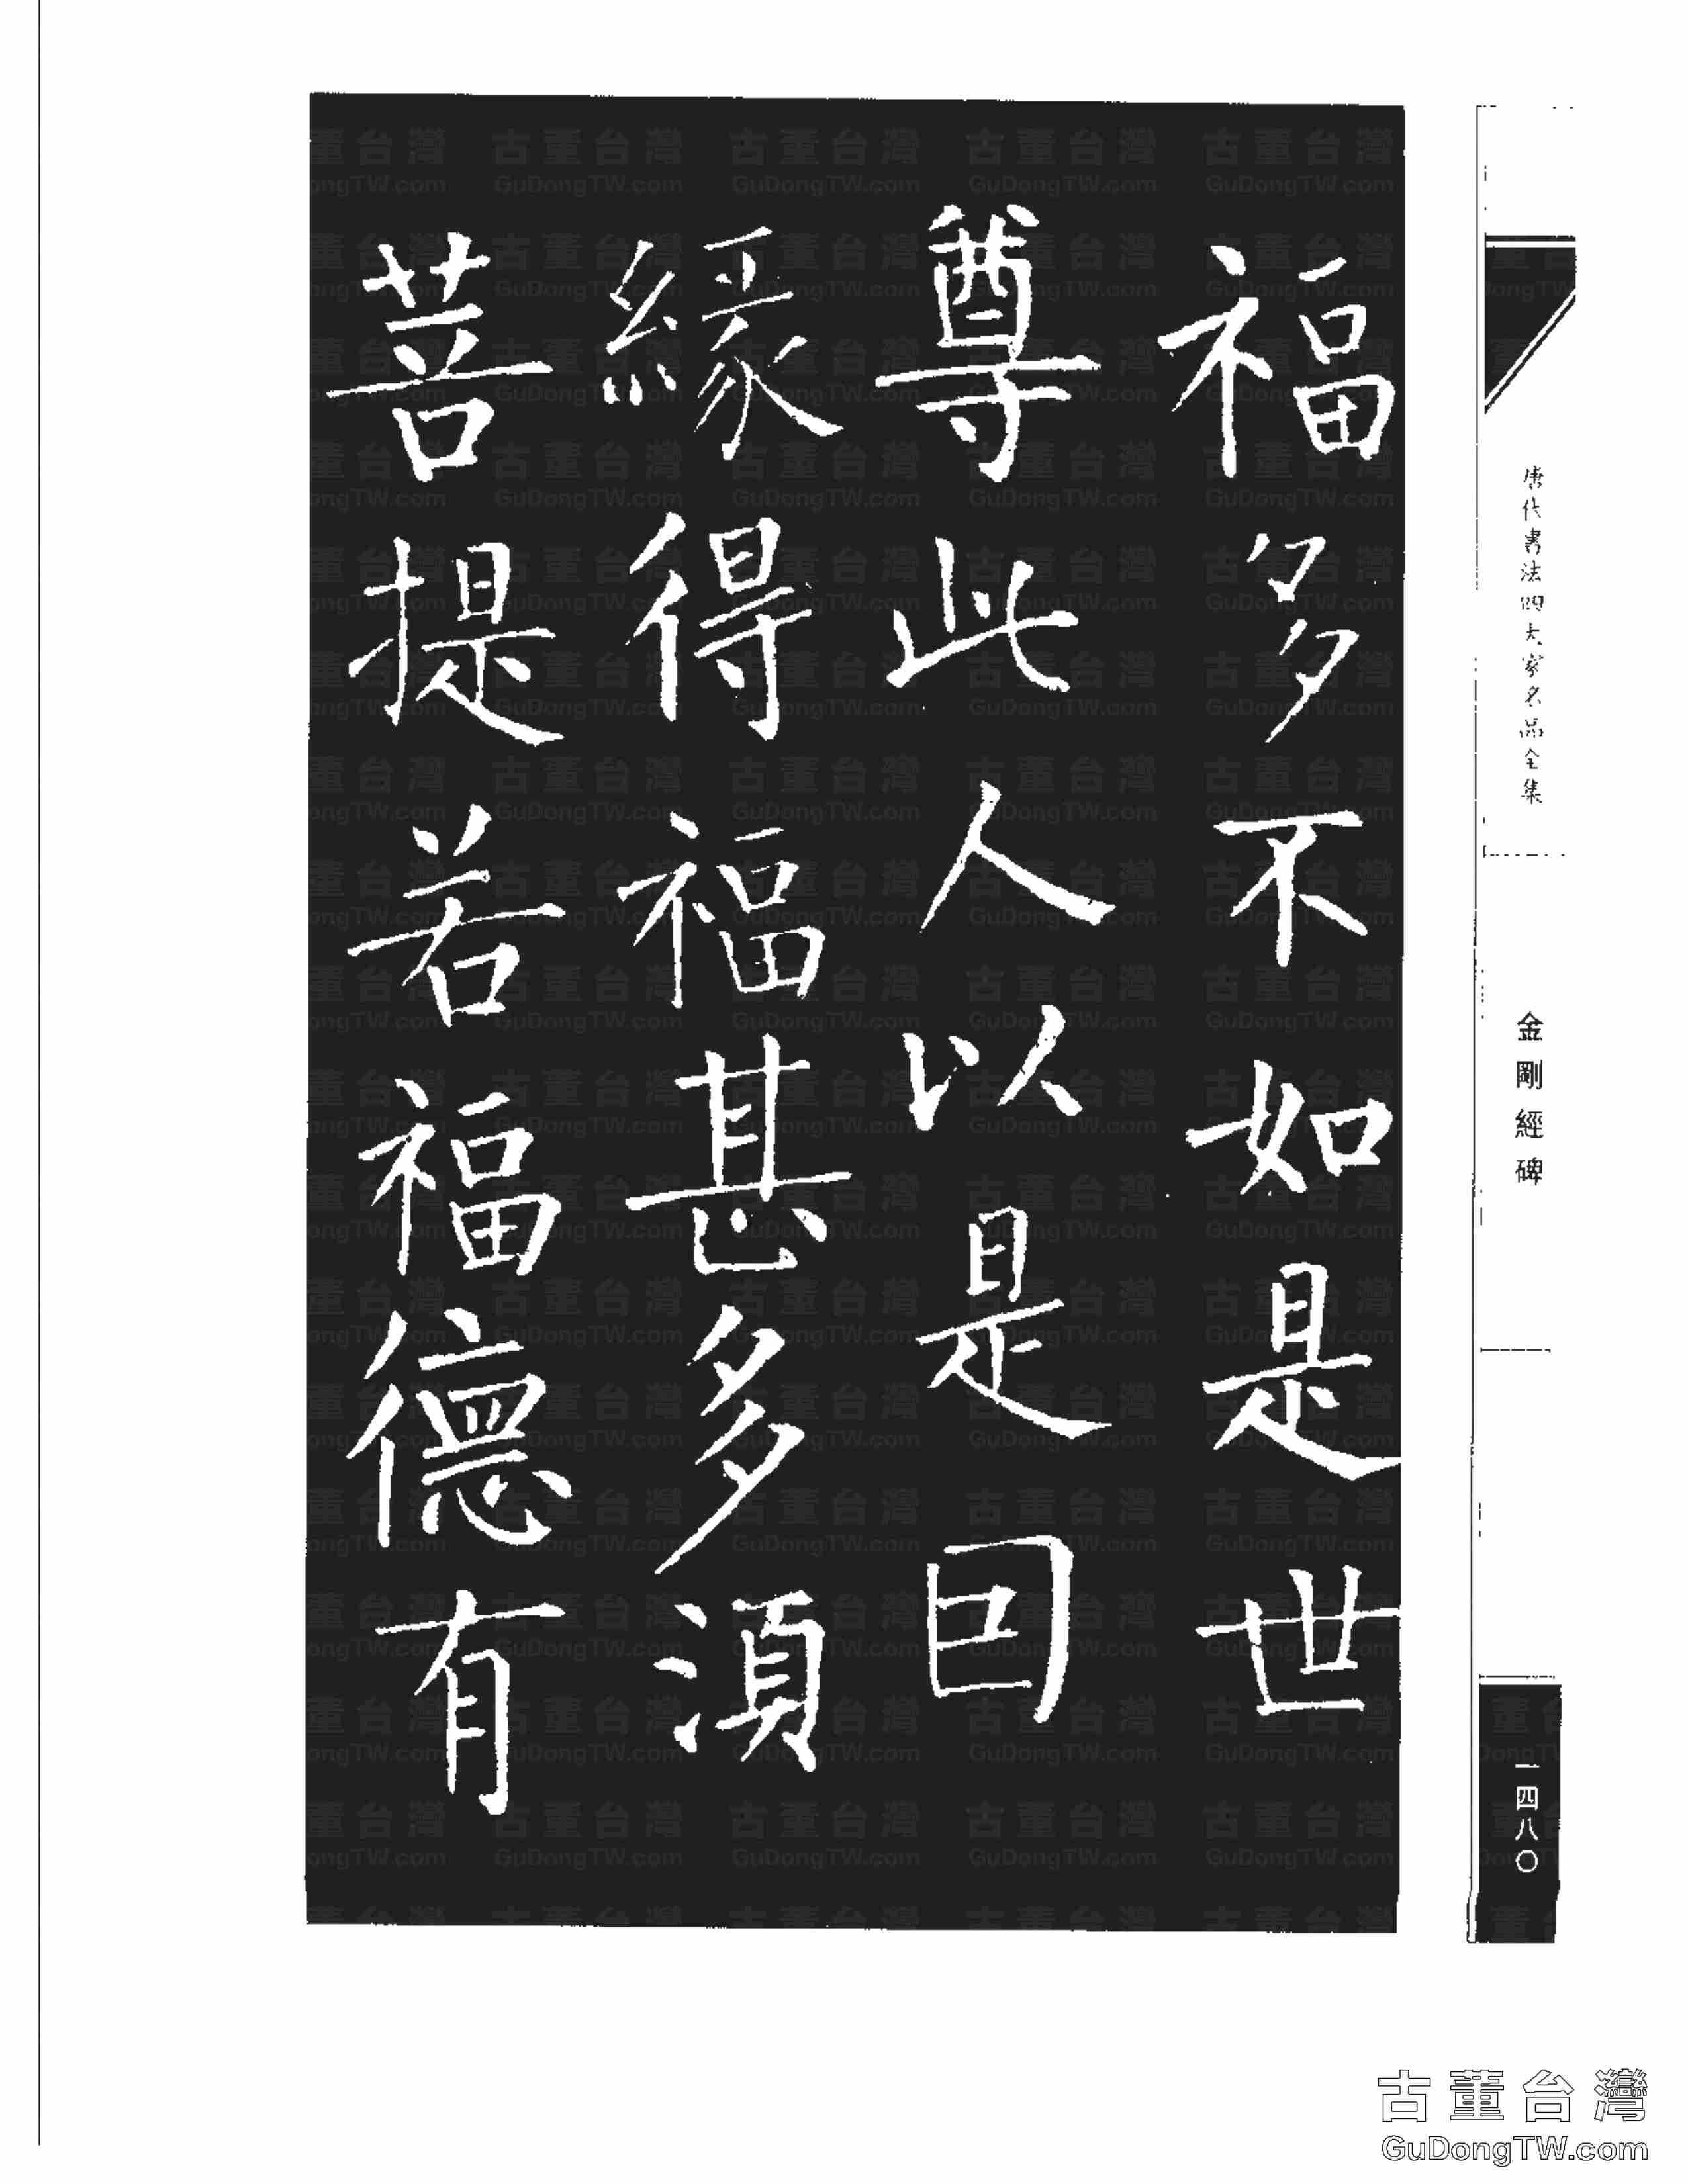 福多不如是世
尊此人以是因
緣得福甚多須
菩提若福德有
唐代書法四大家名品全集
金剛經碑
一四八〇
古董台灣
GuDongTW.com